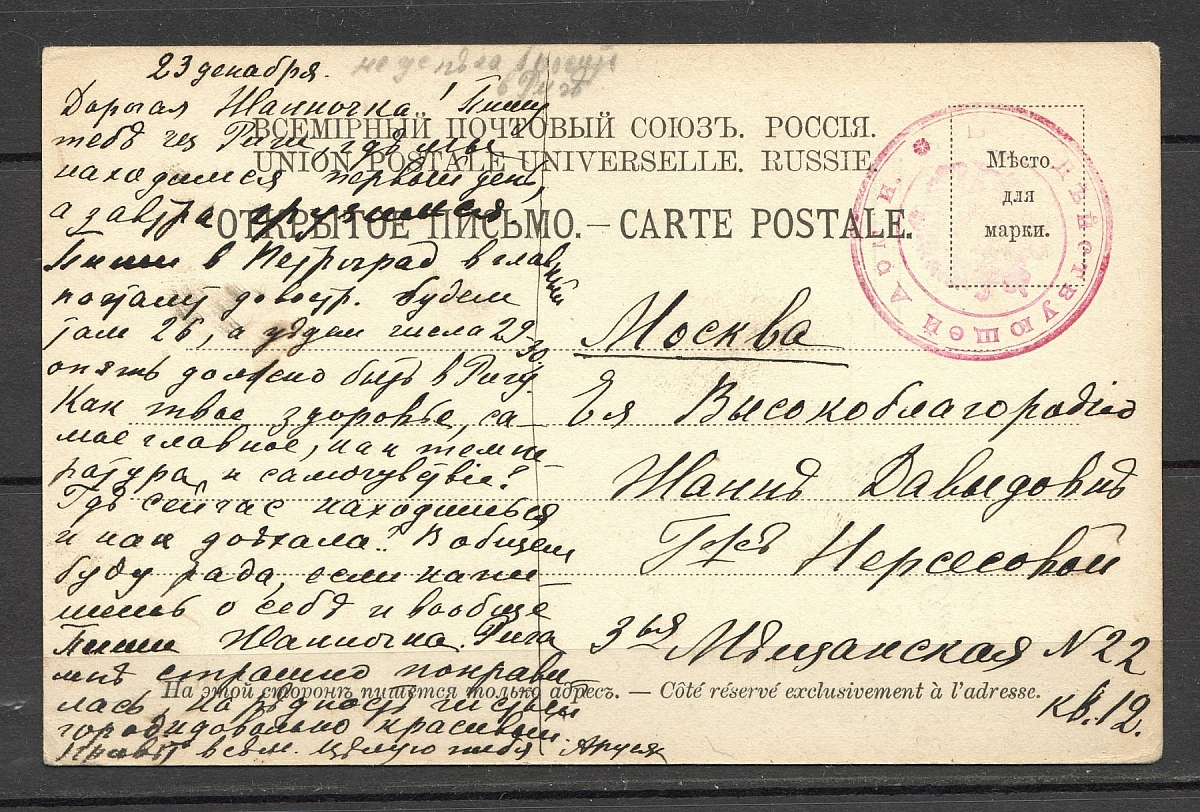 23 декабря.
Дорогая Жанночка! Пишу
тебѣ из Риги, гдѣ мы
находимся первый день,
а завтра грузимся
Пиши в Петроград в главный
почтамт до востр. будем
там 26, а уѣдем числа 29–30
опять должно быть в Ригу.
Как твое здоровье, са–
мое главное, как темпе–
ратура и самочувствіе?
Гдѣ сейчас находишься
и как доѣхала? Вообщем
буду рада, если напи–
шешь о себѣ и вообще
Пиши Жанночка. Рига
мнѣ страшно понрави
лась, на рѣдкость чистый
город и довольно красивый.
Привѣт всѣм. цѣлую тебя Аруся
в Ригѣ
ВСЕМІРНЫЙ ПОЧТОВЫЙ СОЮЗЪ. РОССІЯ.
UNION POSTALE UNIVERSELLE. RUSSIE
ОТКРЫТОЕ ПИСЬМО. — CARTE POSTALE.
Мѣсто
для
марки.
ДѢЙСТВУЮЩЕЙ АРМІИ.
Москва
Ея Высокоблагородію
Жаннѣ Давыдовнѣ
Г-жѣ Нерсесовой
3ья Мѣщанская N 22
кв. 12.
На этой сторонѣ пишется только адресъ. — Côté réservé exclusivement à l'adresse.